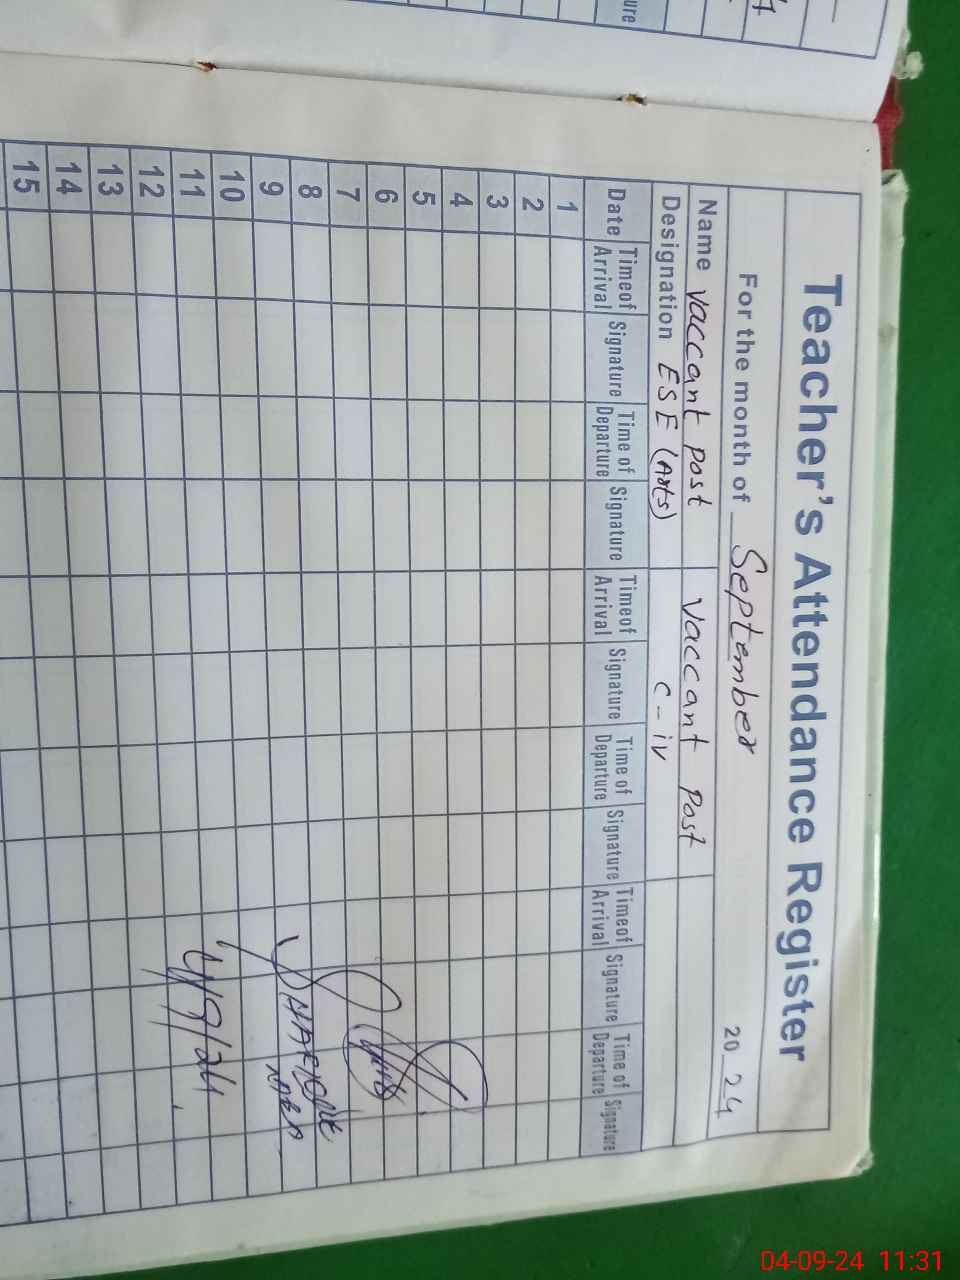 ure
Teacher's Attendance Register
For the month of September 20 24
Name vaccant post vaccant post
Designation ESE (Arts) C-iv
Date Timeof Arrival Signature Time of Departure Signature Timeof Arrival Signature Time of Departure Signature Timeof Arrival Signature Time of Departure Signature
1
2
3
4
5
6
7
8
9
10
11
12
13
14
15
4/9/24
04-09-24 11:31